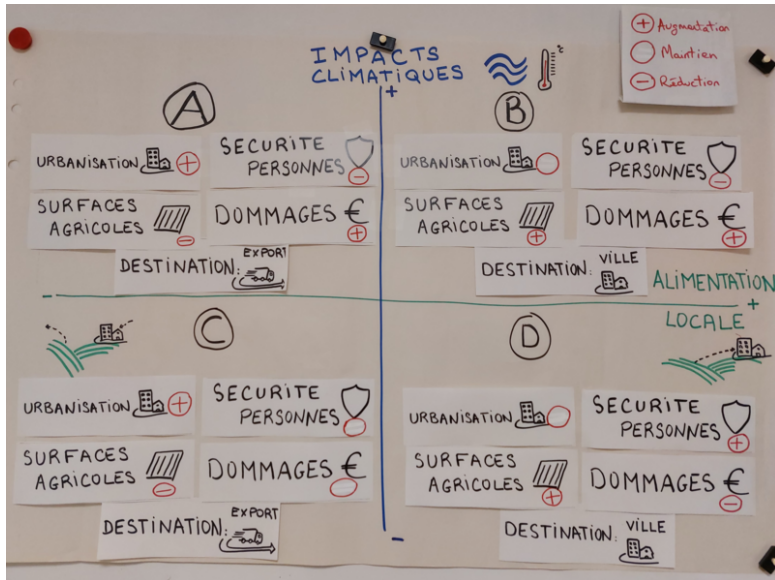 ⊕ Augmentation
○ Maintien
⊖ Réduction
IMPACTS
CLIMATIQUES
°C
+
A
URBANISATION +
SECURITE
PERSONNES -
SURFACES
AGRICOLES -
DOMMAGES € +
DESTINATION: EXPORT
B
URBANISATION
SECURITE
PERSONNES -
SURFACES
AGRICOLES +
DOMMAGES € +
DESTINATION: VILLE
-
ALIMENTATION
+
LOCALE
C
URBANISATION +
SECURITE
PERSONNES
SURFACES
AGRICOLES -
DOMMAGES €
DESTINATION: EXPORT
D
URBANISATION
SECURITE
PERSONNES +
SURFACES
AGRICOLES +
DOMMAGES € -
DESTINATION: VILLE
-